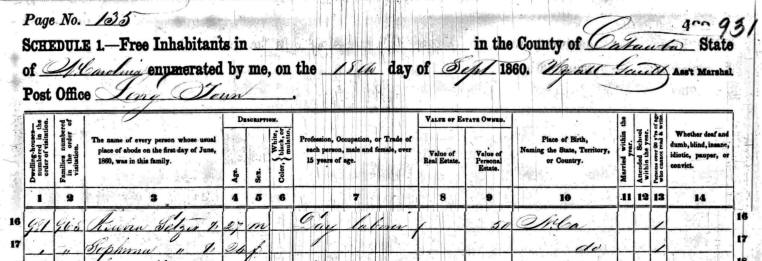 Page No. 135
931
SCHEDULE 1.—Free Inhabitants in in the County of Catawba State
of N Carolina enumerated by me, on the 18th day of Sept 1860. Wyatt Ass't Marshal
Post Office Long Town
DESCRIPTION.
VALUE OF ESTATE OWNED.
Dwelling-houses—numbered in the order of visitation.
Families numbered in the order of visitation.
The name of every person whose usual place of abode on the first day of June, 1860, was in this family.
Age.
Sex.
Color, White, black, or mulatto.
Profession, Occupation, or Trade of each person, male and female, over 15 years of age.
Value of Real Estate.
Value of Personal Estate.
Place of Birth, Naming the State, Territory, or Country.
Married within the year.
Attended School within the year.
Persons over 20 y'rs of age who cannot read & write.
Whether deaf and dumb, blind, insane, idiotic, pauper, or convict.
1 2 3 4 5 6 7 8 9 10 11 12 13 14
16 Setzer 27 m Day laborer 50 N. Ca 1 16
17 " " f do 1 17